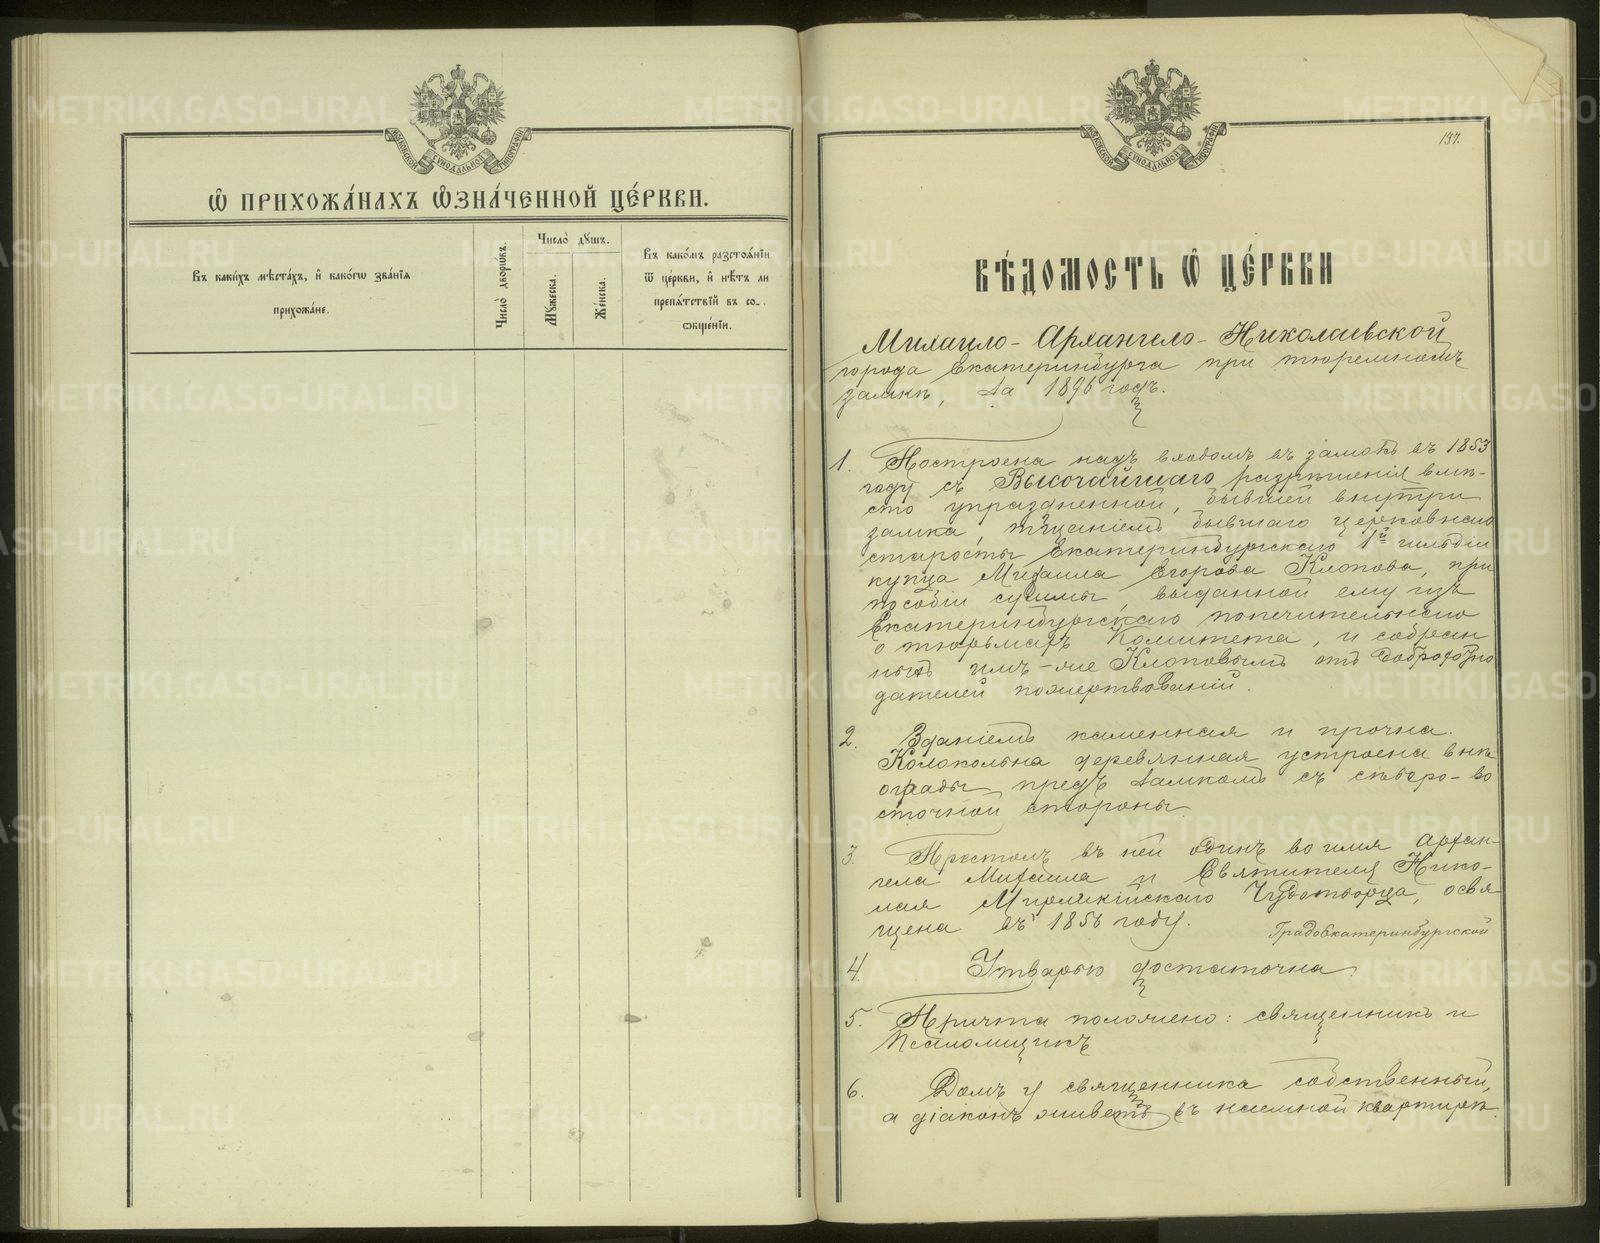 МОСКОВСКОЙ СѴНОДАЛЬНОЙ ТИПОГРАФІИ
Ѡ ПРИХОЖА́НАХЪ Ѡ҆ЗНА́ЧЕННОЙ ЦЕ́РКВИ.
Въ каки́хъ мѣста́хъ, и҆ како́гѡ зва́нїѧ
прихожа́не.
Число̀ дворѡ́въ.
Число̀ дꙋшъ.
Мꙋ́жеска.
Же́нска.
Въ како́мъ разстоѧ́нїи
ѿ це́ркви, и҆ нѣ́тъ ли
препѧ́тствїй въ со-
ѻбще́нїи.
МОСКОВСКОЙ СѴНОДАЛЬНОЙ ТИПОГРАФІИ
137.
ВѢ́ДОМОСТЬ Ѡ ЦЕ́РКВИ
Михаило-Архангело-Николаевской
города Екатеринбурга при тюремномъ
замкѣ, за 1896 годъ.
1. Построена надъ входомъ въ замокъ въ 1853
году съ Высочайшаго разрѣшенія вмѣ-
сто упраздненной, бывшей внутри
замка, тщаніемъ бывшаго церковнаго
старосты Екатеринбургскаго 1й гильдіи
купца Михаила Егорова Клопова, при
пособіи суммы, выданной ему изъ
Екатеринбургскаго попечительнаго
о тюрьмахъ Комитета, и собран
ныхъ имъ-же Клоповымъ отъ доброхотно
дателей пожертвованій.
2. Зданіемъ каменная и прочна.
Колокольна деревянная устроена внѣ
ограды предъ замкомъ съ сѣверо-во
сточной стороны.
3. Престолъ въ ней одинъ во имя Архан-
гела Михаила и Святителя Нико-
лая Мирликійскаго Чудотворца, освя
щена въ 1856 году.
Градоекатеринбургской
4. Утварью достаточна.
5. Причта положено: священникъ и
Псаломщикъ
6. Домъ у священника собственный,
а діаконъ живетъ въ наемной квартирѣ.
METRIKI.GASO-URAL.RU